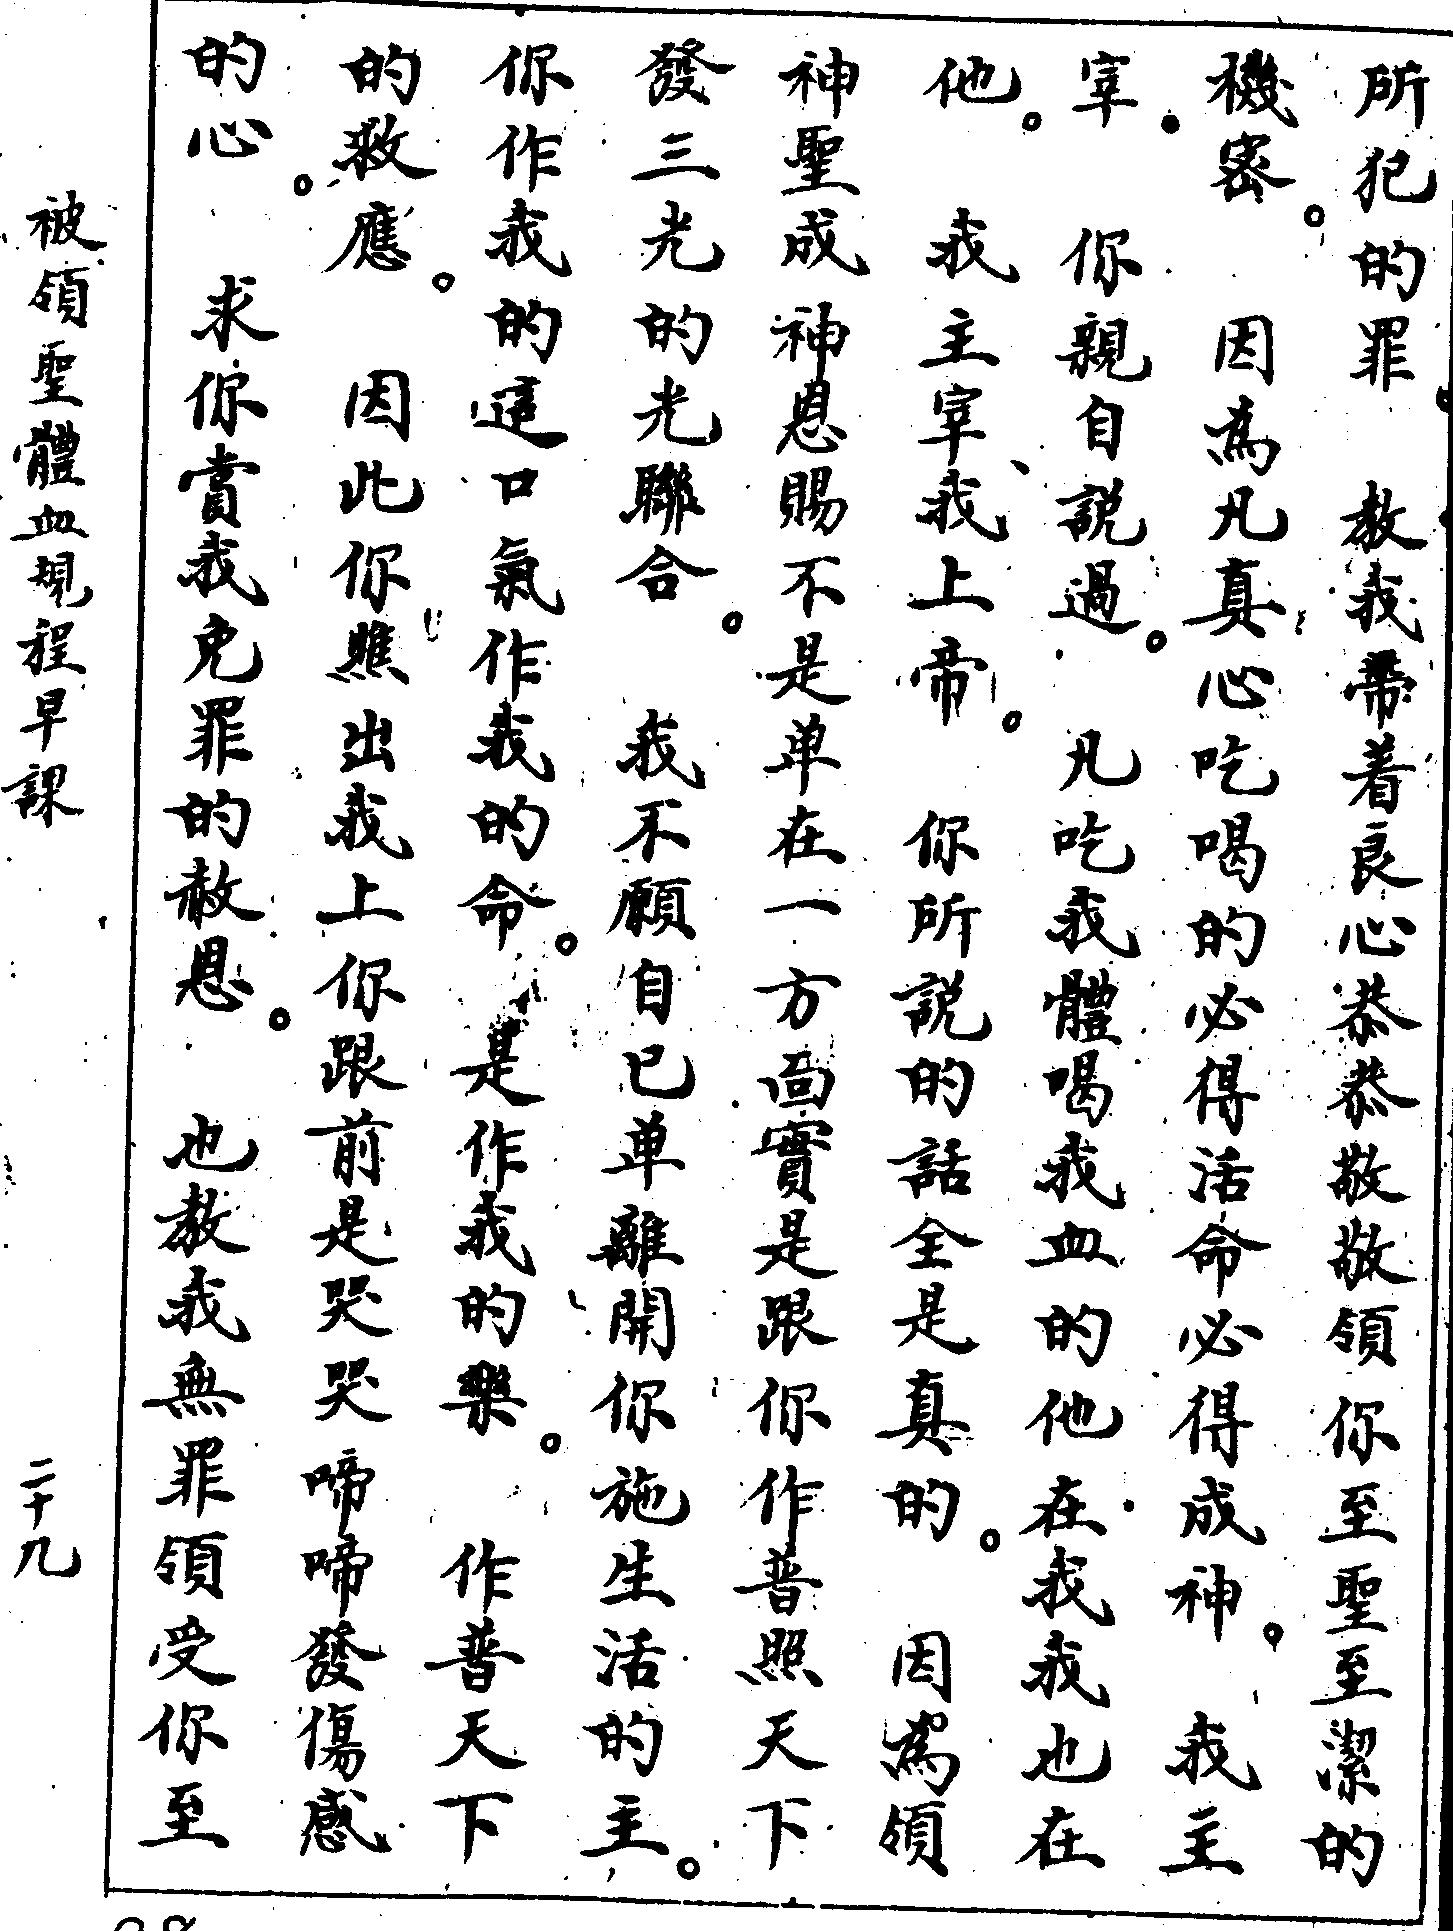 所犯的罪　教我帶着良心恭恭敬敬領你至聖至潔的
機密。　因為凡真心吃喝的必得活命必得成神。　我主
宰　你親自説過。　凡吃我體喝我血的他在我我也在
他。　我主宰、我上帝。　你所説的話全是真的。　因為領
神聖成神恩賜不是单在一方面實是跟你作普照天下
發三光的光聯合。　我不願自已单離開你施生活的主。
你作我的這口氣作我的命。是作我的樂。　作普天下
的救應。　因此你瞧出我上你跟前是哭哭啼啼發傷感
的心。　求你賞我免罪的赦恩。　也教我無罪領受你至
被領聖體血規程早課
二十九